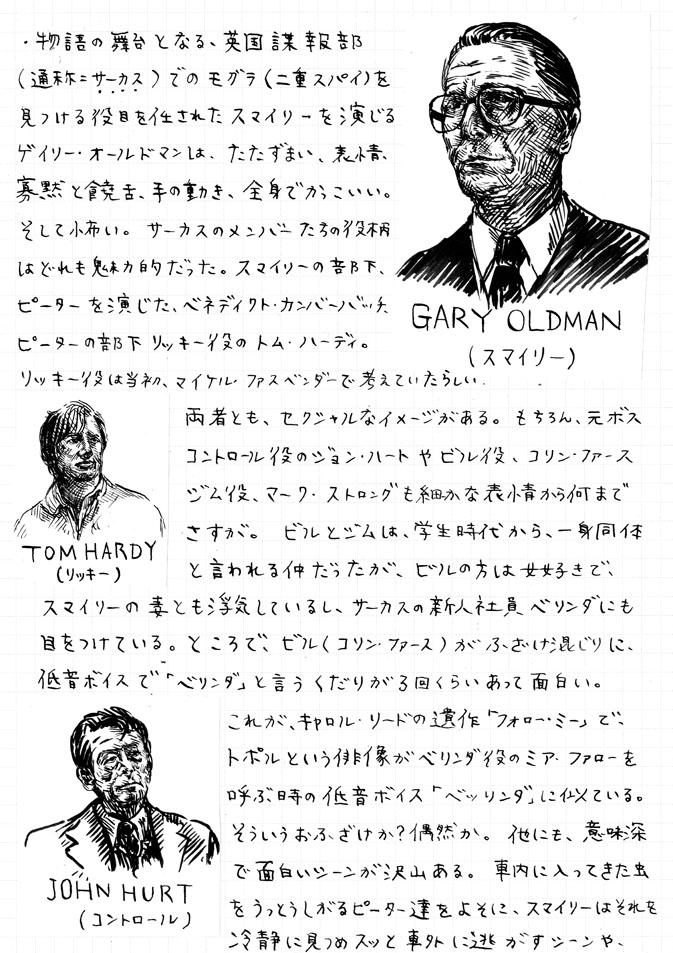 ・物語の舞台となる、英国諜報部
(通称=サーカス)でのモグラ(二重スパイ)を
見つける役目を任されたスマイリーを演じる
ゲイリー・オールドマンは、たたずまい、表情、
寡黙と饒舌、手の動き、全身でかっこいい。
そして怖い。サーカスのメンバーたちの役柄
はどれも魅力的だった。スマイリーの部下、
ピーターを演じた、ベネディクト・カンバーバッチ、
ピーターの部下リッキー役のトム・ハーディ。
リッキー役は当初、マイケル・ファスベンダーで考えていたらしい.
GARY OLDMAN
(スマイリー)
両者とも、セクシャルなイメージがある。もちろん、元ボス
コントロール役のジョン・ハートやビル役、コリン・ファース
ジム役、マーク・ストロングも細かな表情から何まで
さすが。ビルとジムは、学生時代から、一身同体
と言われる仲だったが、ビルの方は女好きで、
スマイリーの妻とも浮気しているし、サーカスの新人社員ベリンダにも
目をつけている。ところで、ビル(コリン・ファース)がふざけ混じりに、
低音ボイスで「ベリンダ」と言うくだりが3回くらいあって面白い。
TOM HARDY
(リッキー)
これが、キャロル・リードの遺作「フォロー・ミー」で、
トポルという俳優がベリンダ役のミア・ファローを
呼ぶ時の低音ボイス「ベッリンダ」に似ている。
そういうおふざけか?偶然か。他にも、意味深
で面白いシーンが沢山ある。車内に入ってきた虫
をうっとうしがるピーター達をよそに、スマイリーはそれを
冷静に見つめスッと車外に逃がすシーンや、
JOHN HURT
(コントロール)